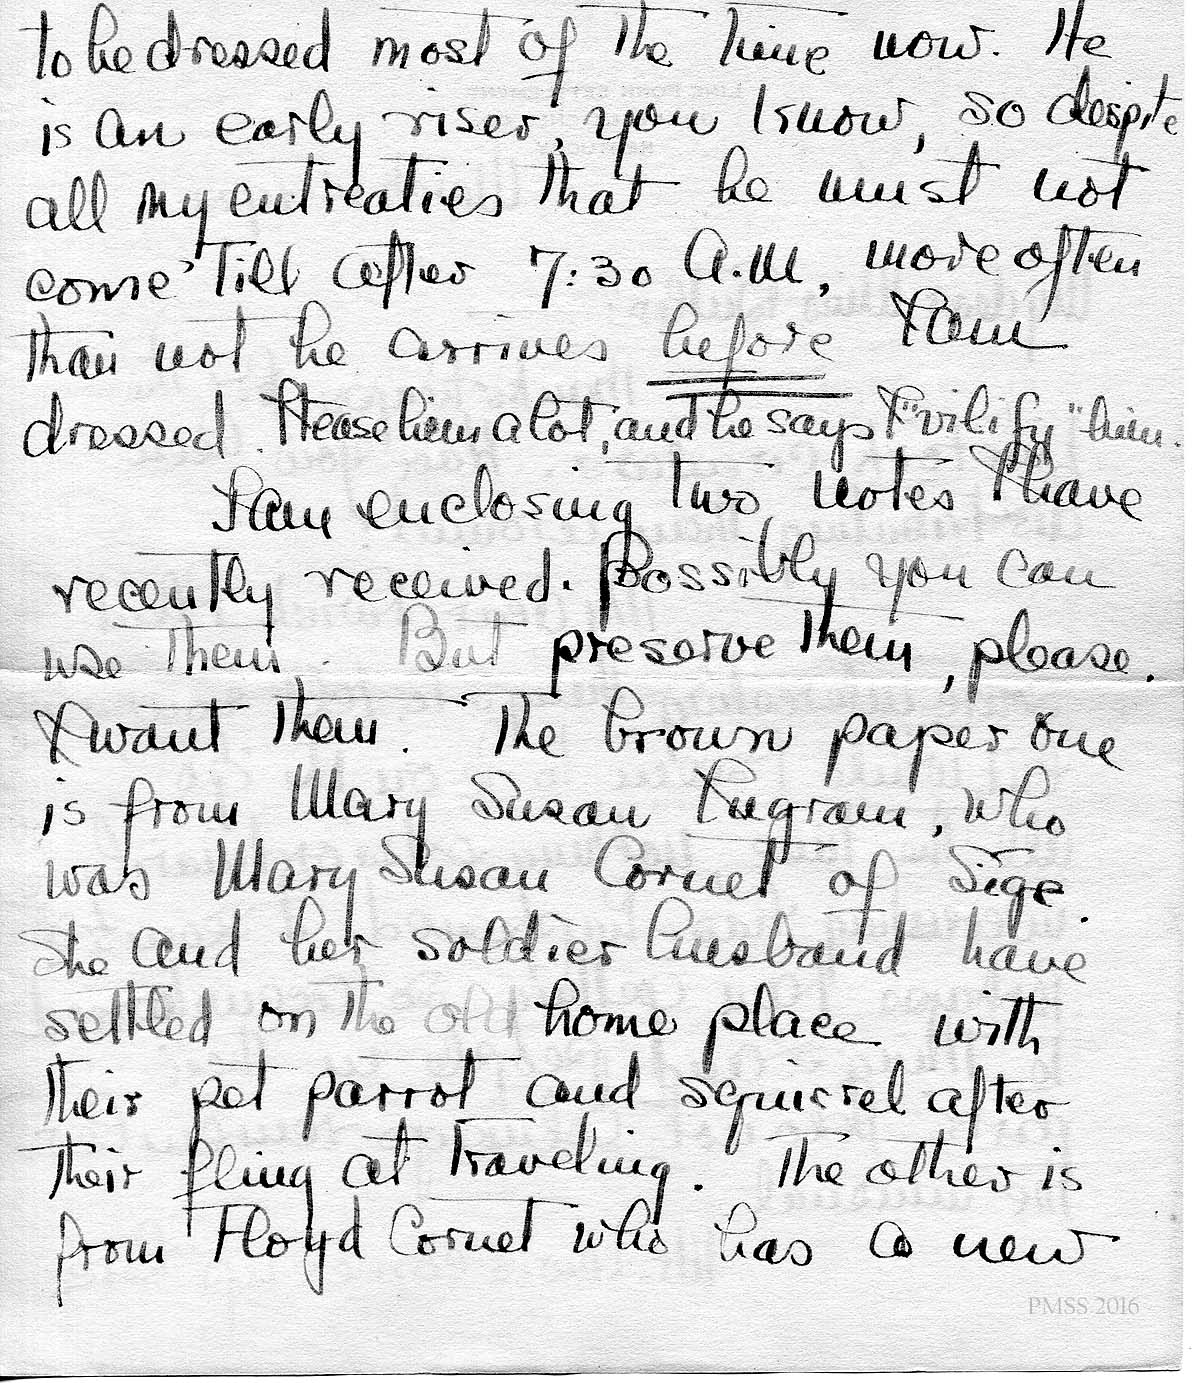 to be dressed most of the time now. He
is an early riser, you know, so despite
all my entreaties that he must not
come 'till after 7:30 A.M., more often
than not he arrives before I am
dressed. I tease him a lot, and he says I "vilify" him.
I am enclosing two notes I have
recently received. Possibly you can
use them. But preserve them, please.
I want them. The brown paper one
is from Mary Susan Ingram, who
was Mary Susan Cornet of Sige.
She and her soldier husband have
settled on the old home place with
their pet parrot and squirrel after
their fling at traveling. The other is
from Floyd Cornet who has a new
PMSS 2016